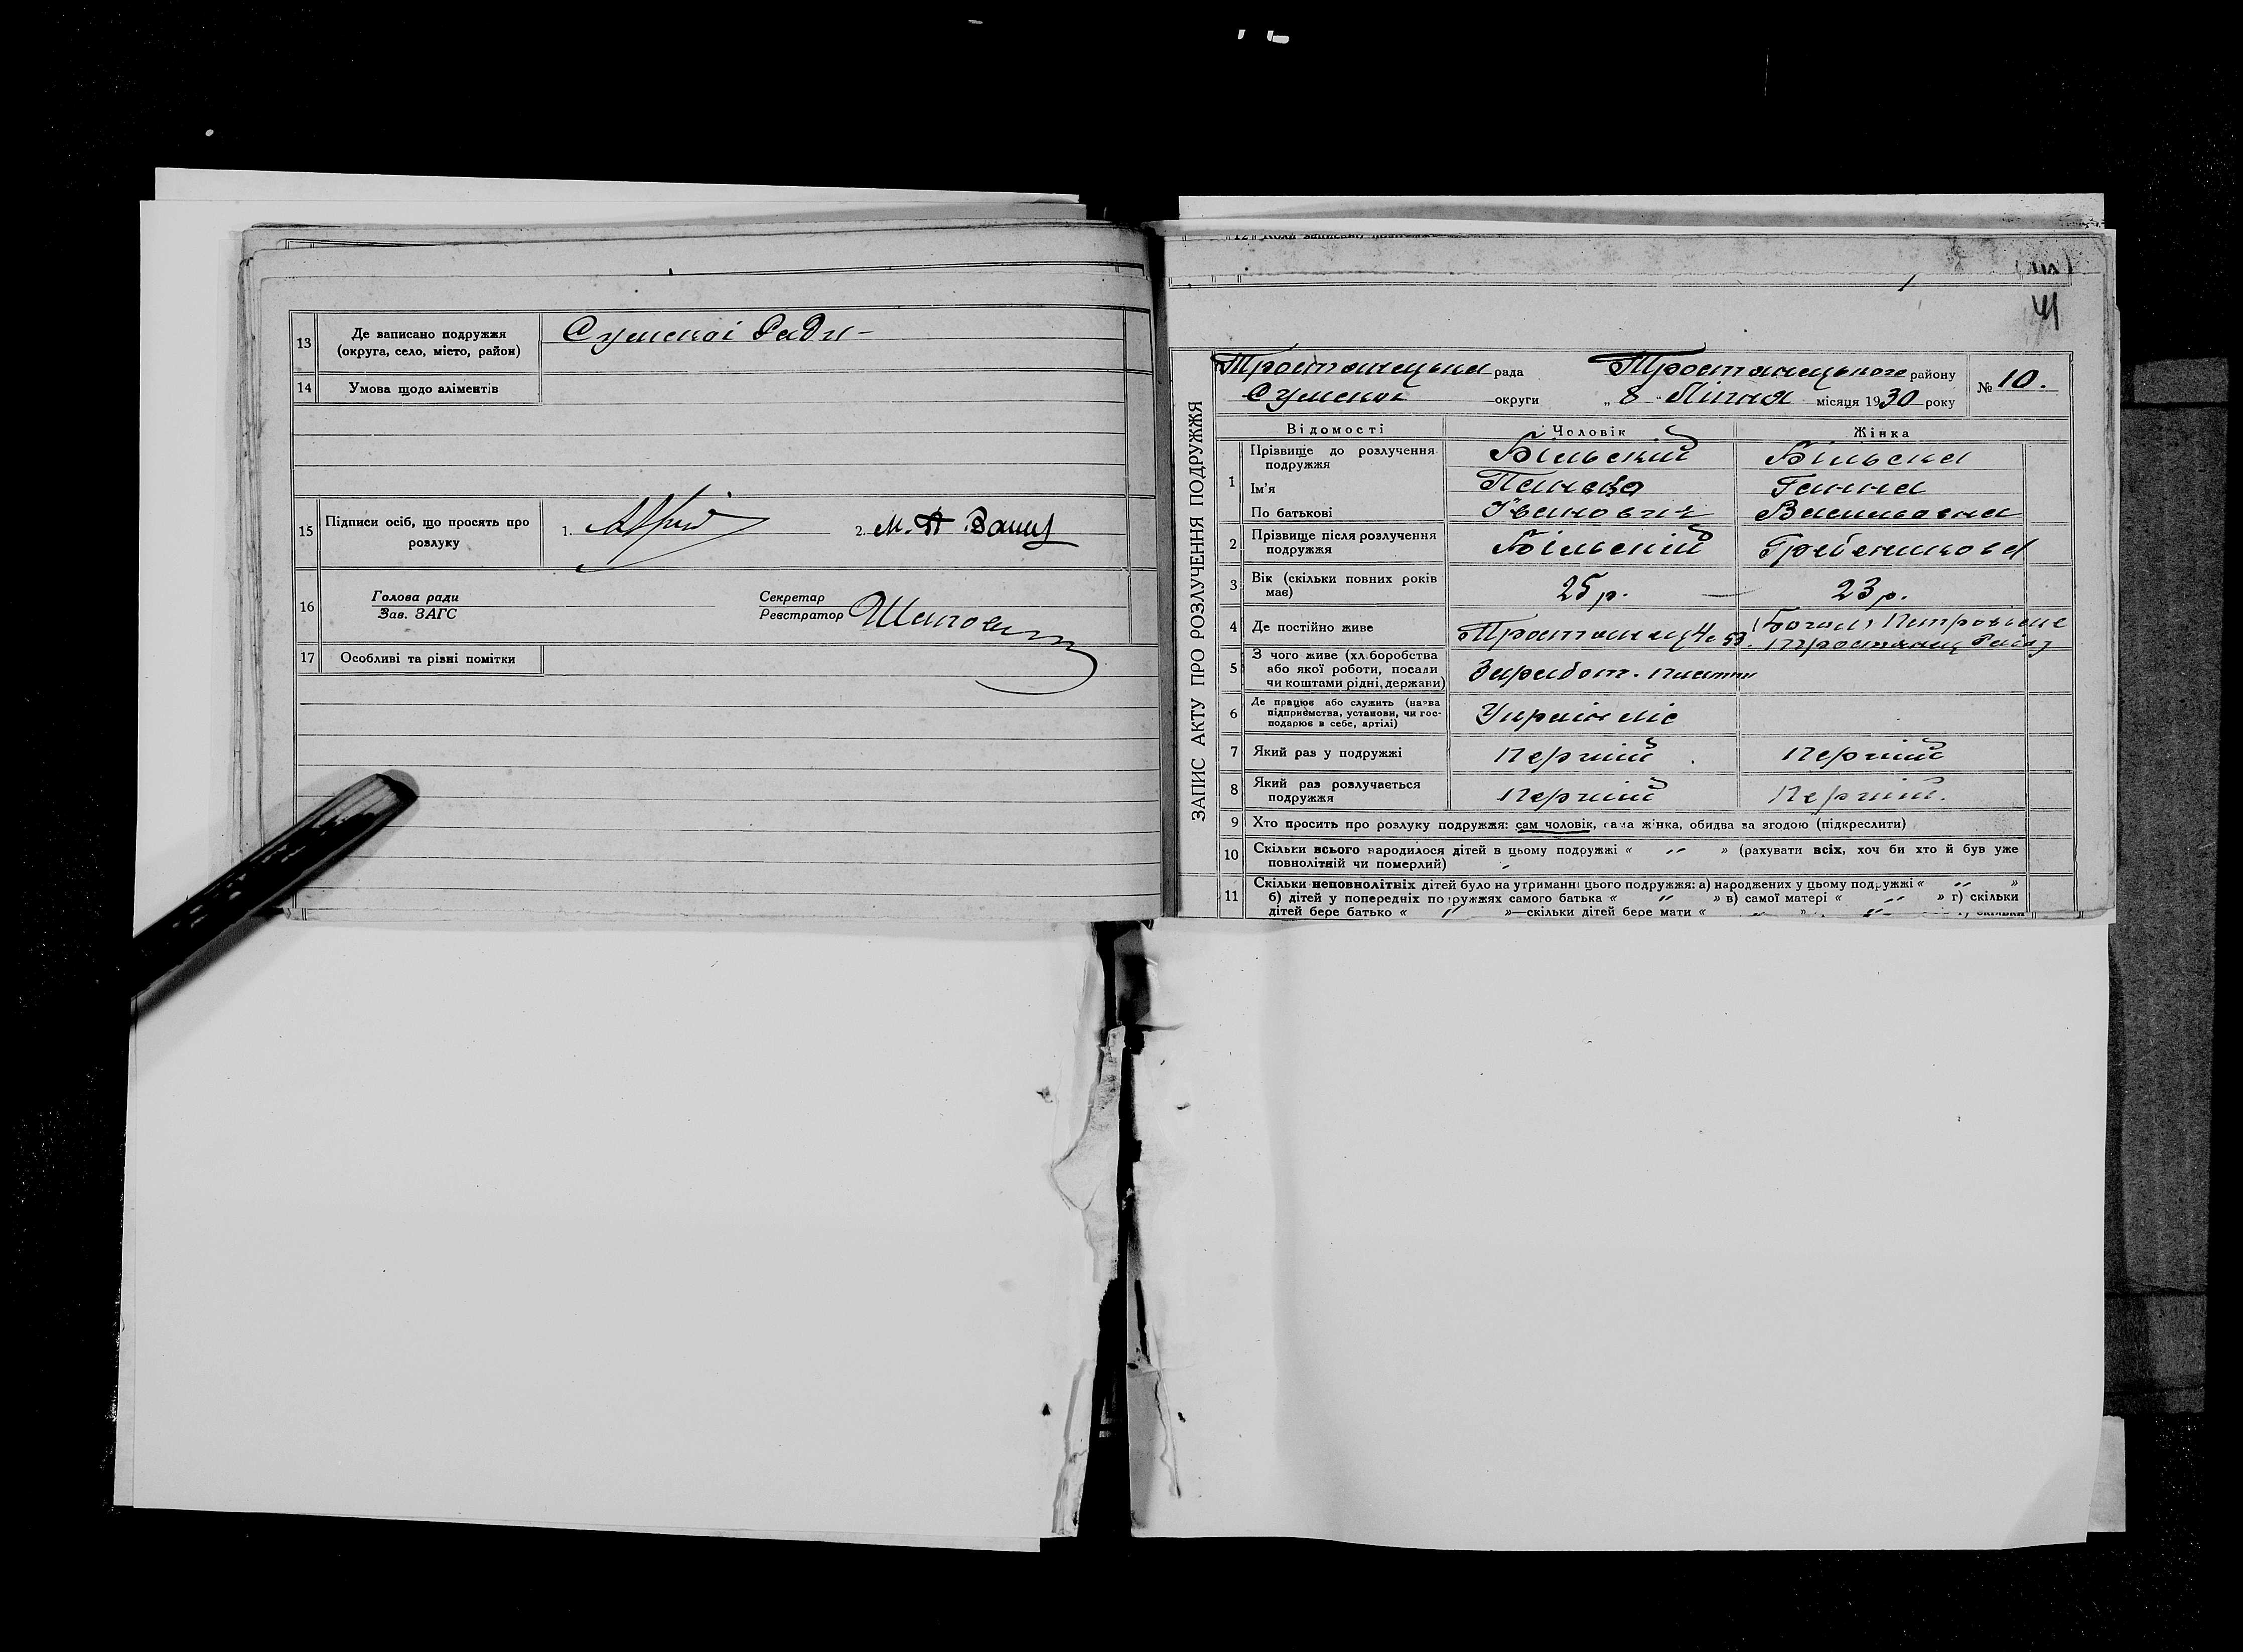 13 Де записано подружжя
(округа, село, місто, район)
Сумскоі Ради
14 Умова щодо аліментів
15 Підписи осіб, що просять про
розлуку
1.
2. М. А.
16 Голова ради
Зав. ЗАГС
Секретар
Реєстратор
17 Особливі та різні помітки
41
ЗАПИС АКТУ ПРО РОЗЛУЧЕННЯ ПОДРУЖЖЯ
Тростянецька рада Тростянецького району
№ 10.
Сумскоі округи „ 8 " Літня місяця 1930 року
Відомості Чоловік Жінка
1 Прізвище до розлучення
подружжя
Більский Більска
Ім'я Ганна
По батькові Іванович Васильовна
2 Прізвище після розлучення
подружжя
Більский Гребеникова
3 Вік (скільки повних років
має)
25 р. — 23 р.
4 Де постійно живе
5 З чого живе (хліборобства
або якої роботи, посади
чи коштами рідні, держави)
Заработ. платни
6 Де працює або служить (назва
підприємства, установи, чи гос-
подарює в себе, артілі)
7 Який раз у подружжі Перший Перший
8 Який раз розлучається
подружжя
Перший Перший.
9 Хто просить про розлуку подружжя: сам чоловік, сама жінка, обидва за згодою (підкреслити)
10 Скільки всього народилося дітей в цьому подружжі « " » (рахувати всіх, хоч би хто й був уже
повнолітній чи померлий)
11 Скільки неповнолітніх дітей було на утриманні цього подружжя: а) народжених у цьому подружжі « " »
б) дітей у попередніх подружжях самого батька « " » в) самої матері « " » г) скільки
дітей бере батько « " »—скільки дітей бере мати «